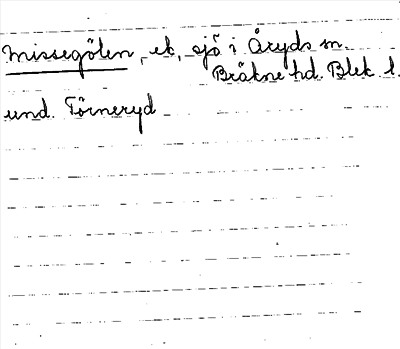 Missegölen, ek, sjö i Åryds sn.
Bräkne hd. Blek l.
und. Törneryd